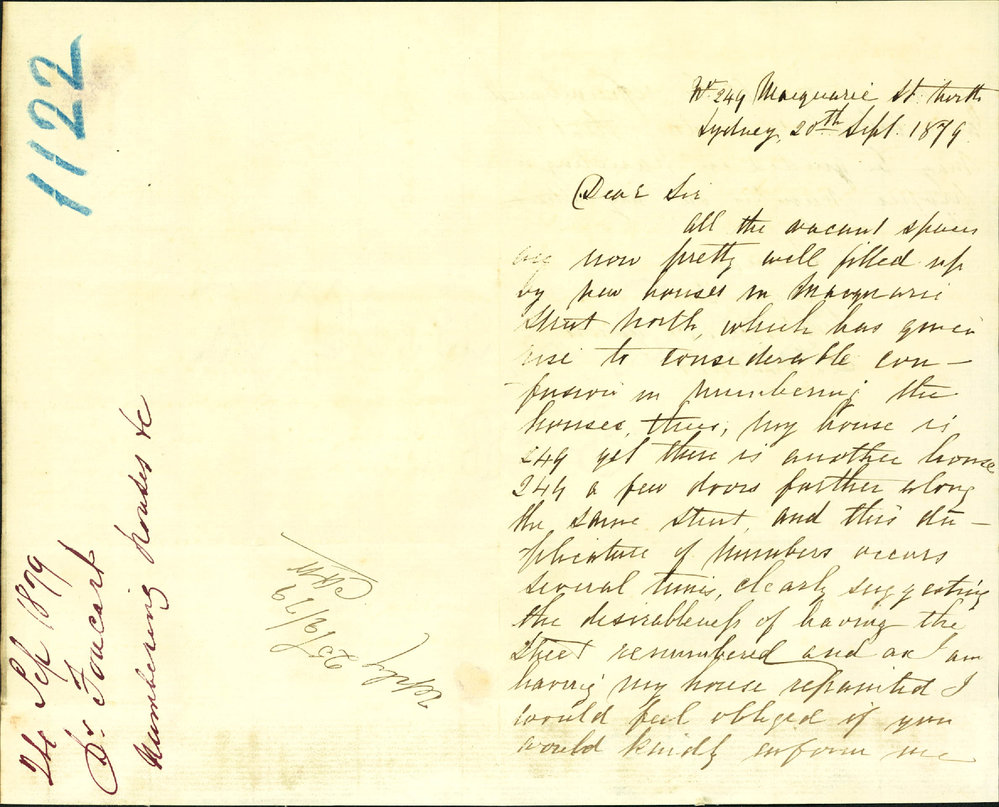 1122
24 Sep 1879
Dr Foucart
Numbering houses &c
reply
25/9/79
No 249 Macquarie St. North
Sydney, 20th Sept. 1879.
Dear Sir
All the vacant spaces
are now pretty well filled up
by new houses in Macquarie
Street North, which has given
rise to considerable con-
fusion in numbering the
houses, thus, my house is
249 yet there is another house
249 a few doors further along
the same street, and this du-
plicature of numbers occurs
several times, clearly suggesting
the desirableness of having the
Street renumbered and as I am
having my house repainted I
would feel obliged if you
would kindly inform me